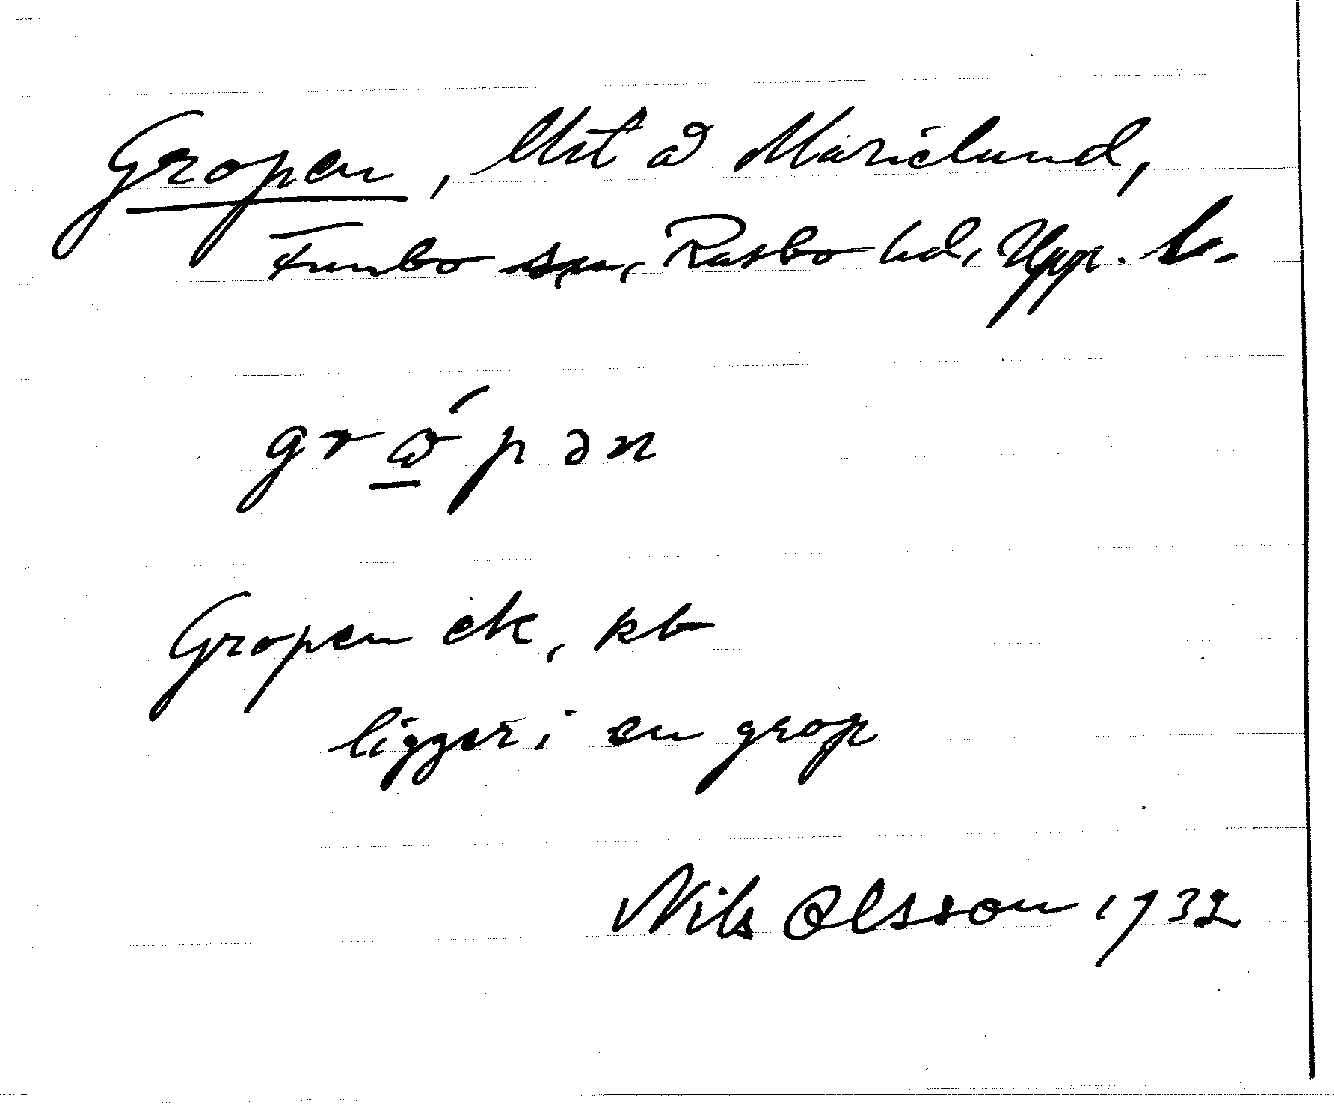 Gropen, lht å Marielund,
Funbo sn, Rasbo hd, Uppl. l.
grώ̲pən
Gropen ek, kb
ligger i en grop
Nils Olsson 1932